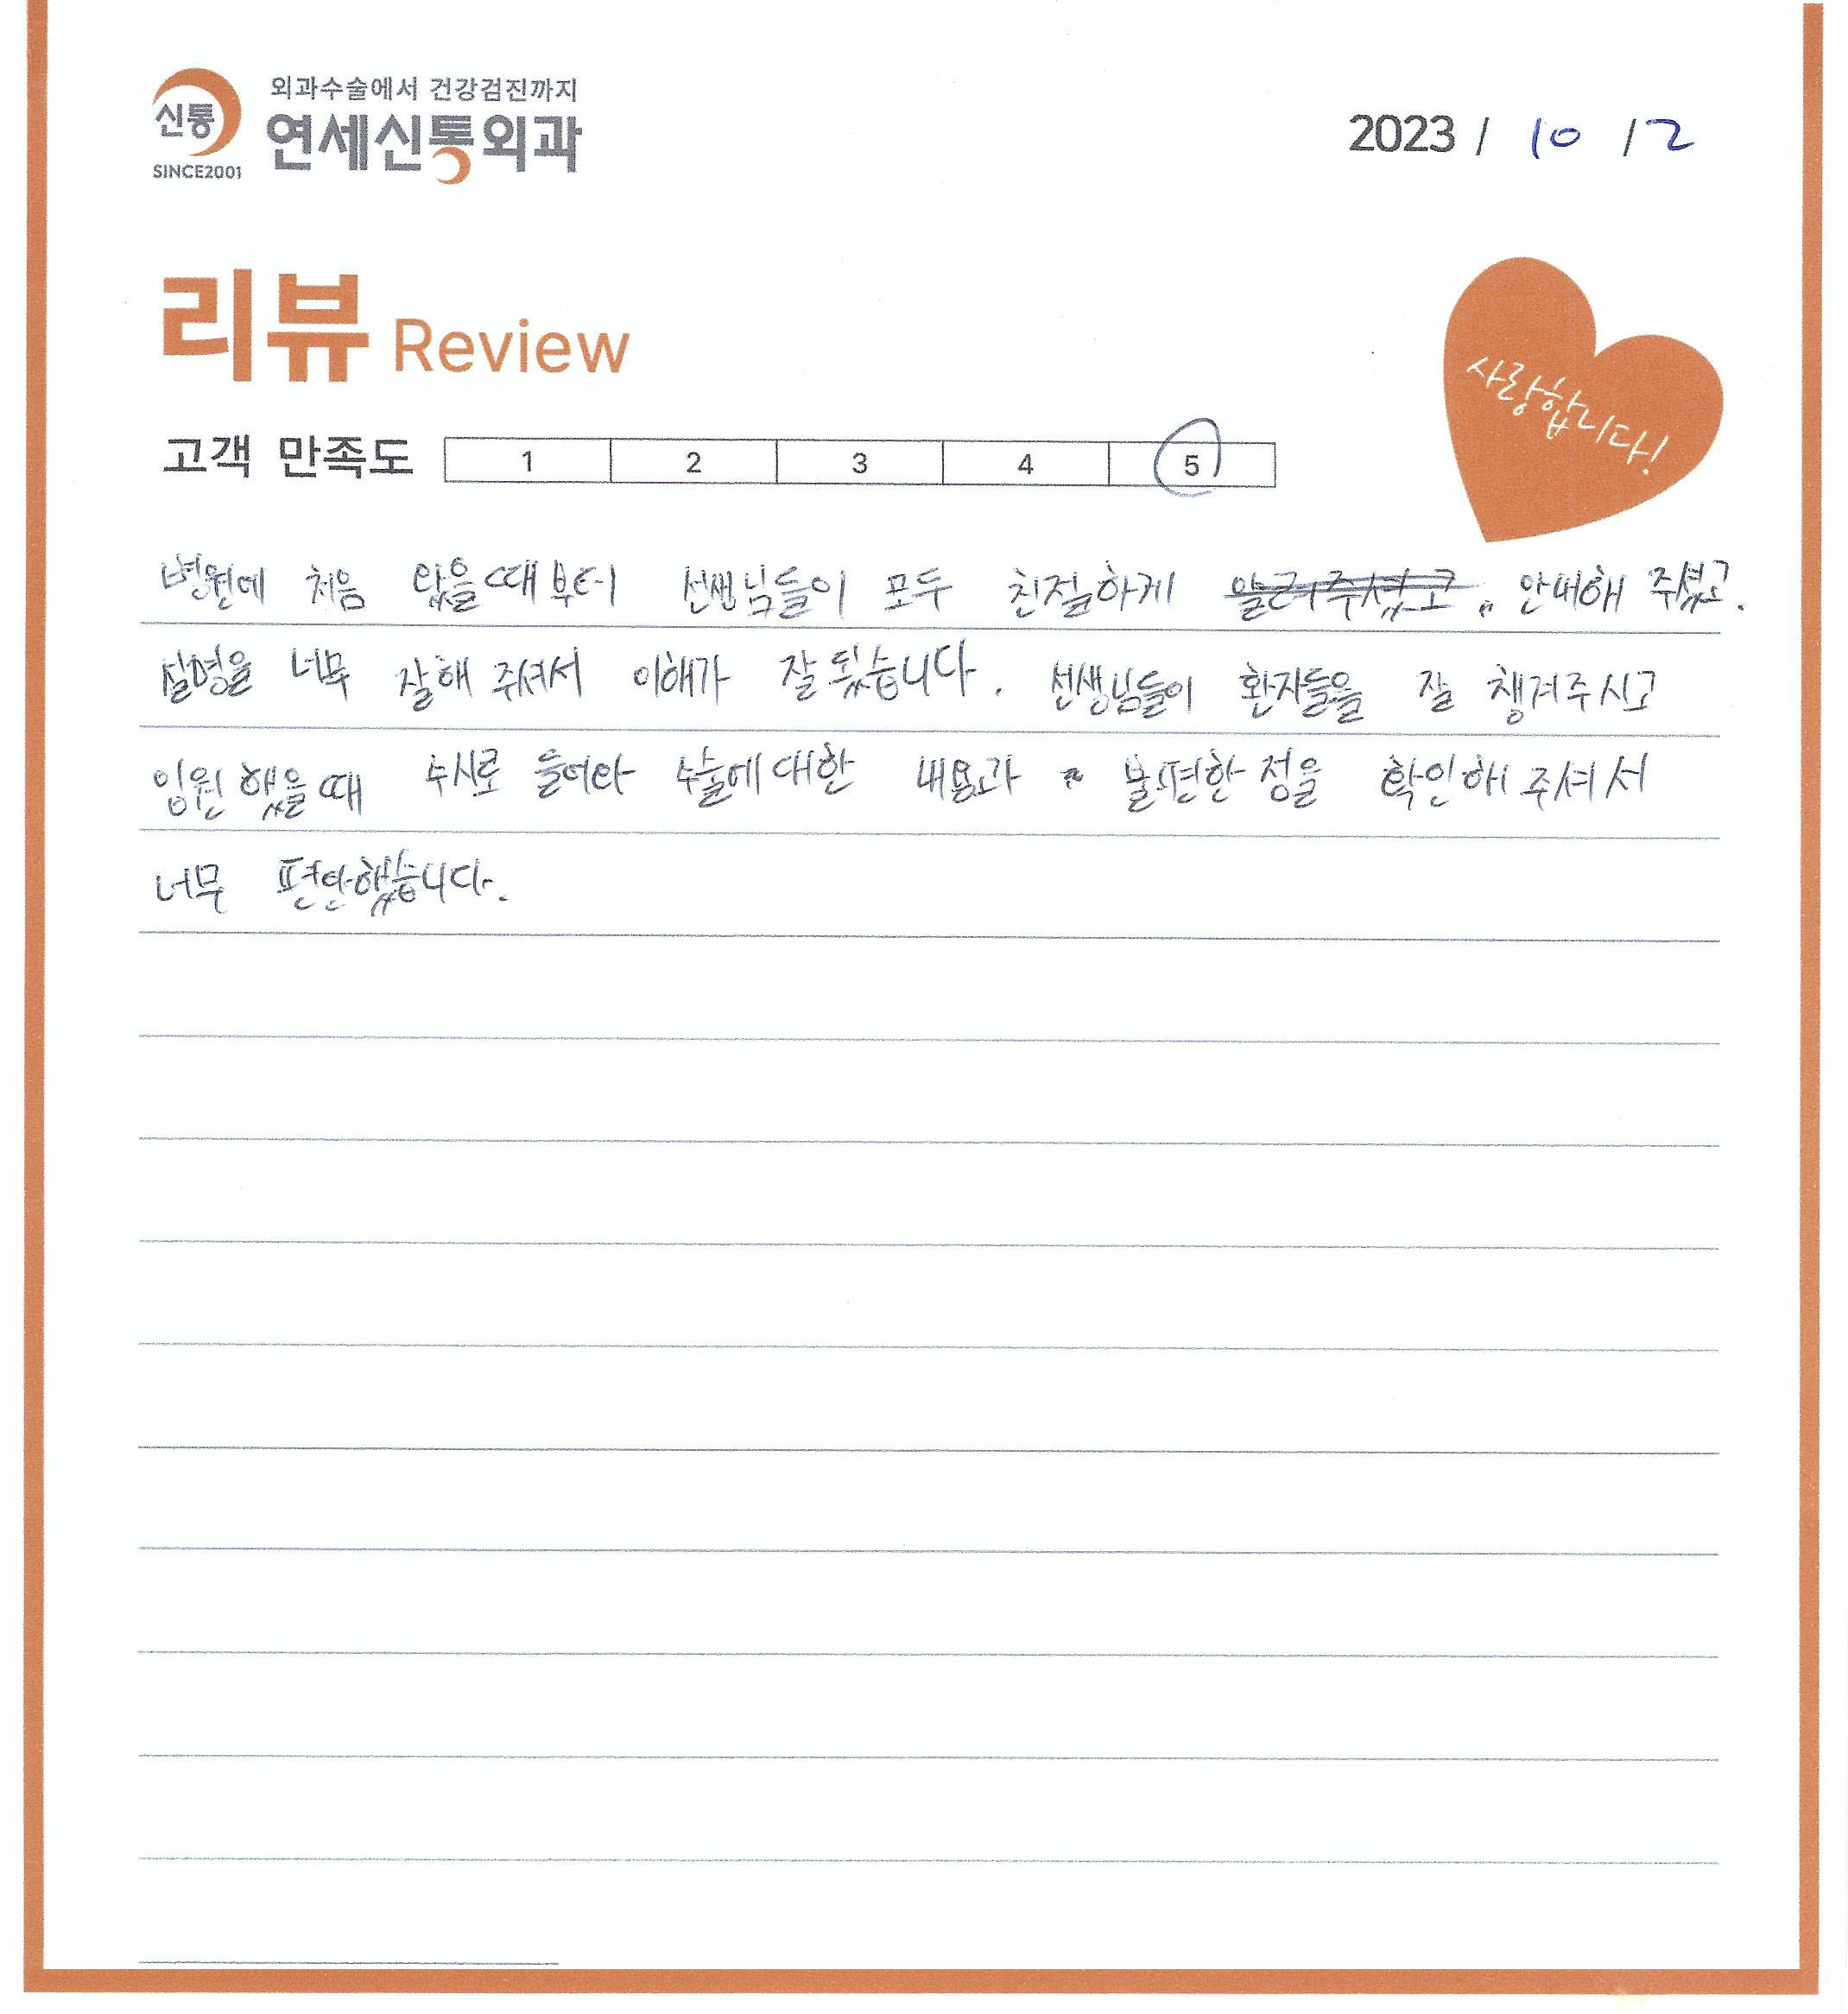 신통
SINCE2001
외과수술에서 건강검진까지
연세신통외과
2023 / 10 / 2
리뷰 Review
사랑합니다!
고객 만족도 1 2 3 4 5
병원에 처음 왔을때부터 선생님들이 모두 친절하게 안내해 주셨고.
설명을 너무 잘해 주셔서 이해가 잘 됐습니다. 선생님들이 환자들을 잘 챙겨주시고
입원했을때 수시로 들어와 수술에 대한 내용과 불편한 점을 확인해 주셔서
너무 편안했습니다.